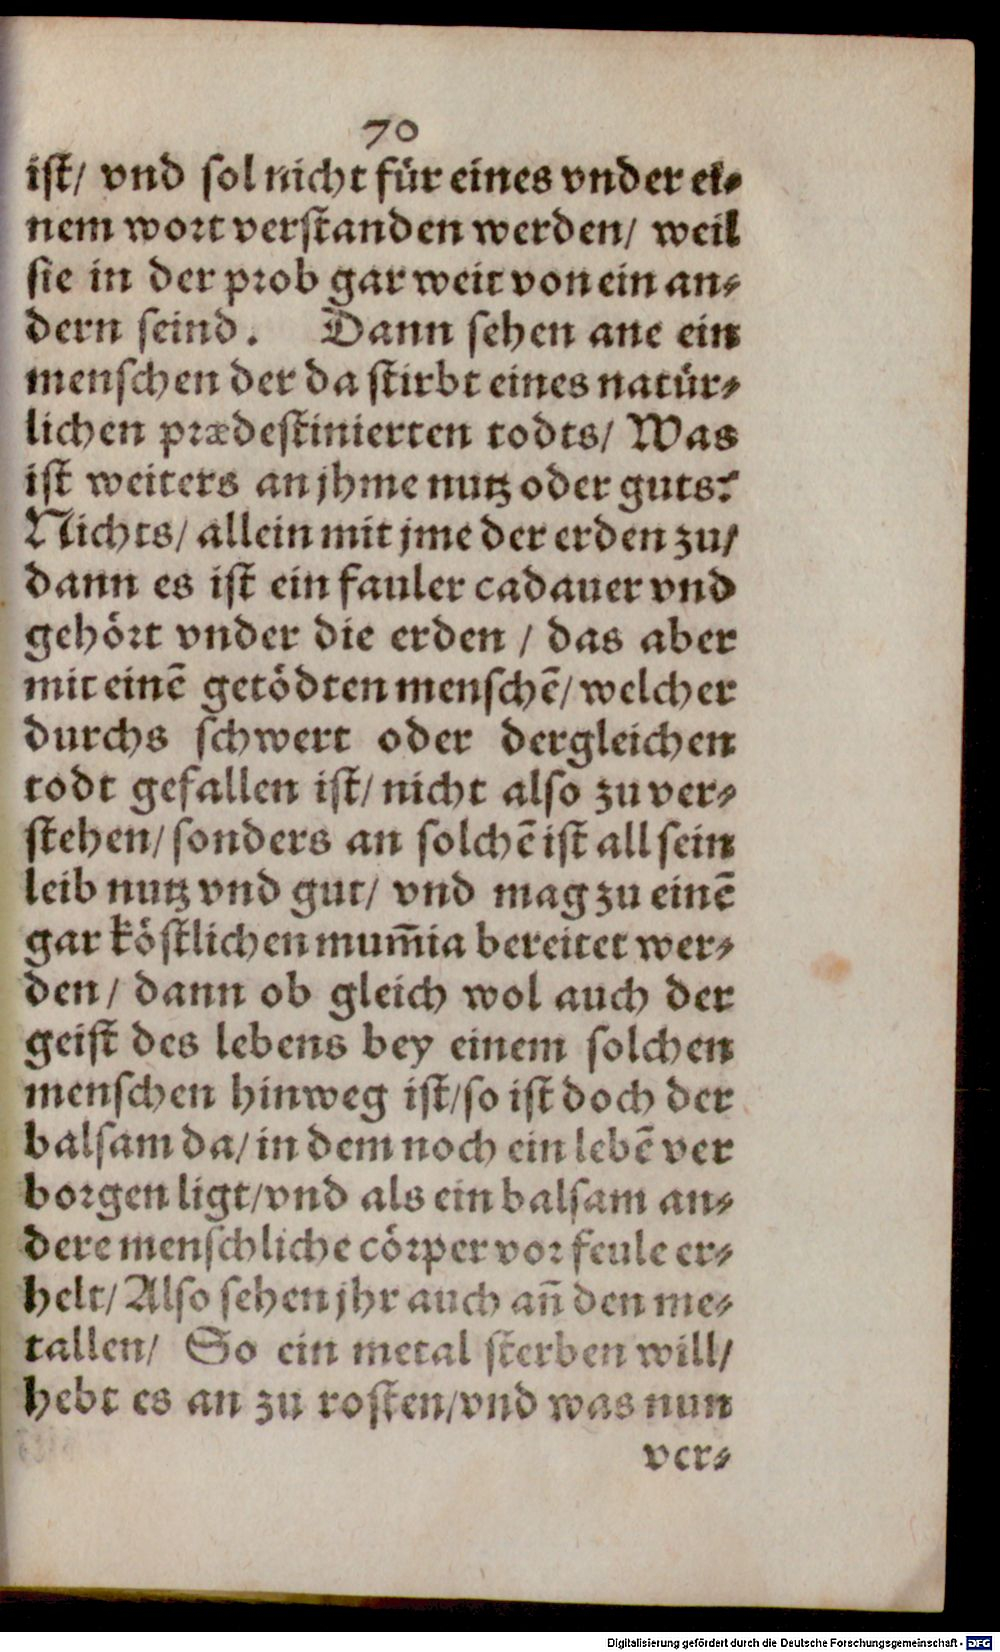 70
ist/ vnd sol nicht für eines vnder ei⸗
nem wort verstanden werden/ weil
sie in der prob gar weit von ein an⸗
dern seind. Dann sehen ane ein
menschen der da stirbt eines natür⸗
lichen prædestinierten todts/ Was
ist weiters an jhme nutz oder guts?
Nichts/ allein mit jme der erden zu/
dann es ist ein fauler cadauer vnd
gehört vnder die erden / das aber
mit einē getödten menschē/ welcher
durchs schwert oder dergleichen
todt gefallen ist/ nicht also zu ver⸗
stehen/ sonders an solchē ist all sein
leib nutz vnd gut/ vnd mag zu einē
gar köstlichen mum̄ia bereitet wer⸗
den/ dann ob gleich wol auch der
geist des lebens bey einem solchen
menschen hinweg ist/ so ist doch der
balsam da/ in dem noch ein lebē ver
borgen ligt/ vnd als ein balsam an⸗
dere menschliche cörper vor feule er⸗
helt/ Also sehen jhr auch an̄ den me⸗
tallen/ So ein metal sterben will/
hebt es an zu rosten/ vnd was nun
ver⸗
Digitalisierung gefördert durch die Deutsche Forschungsgemeinschaft - DFG